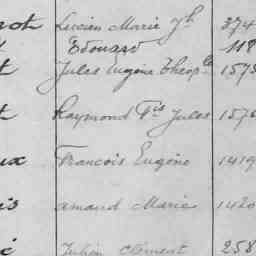 not Lucien Marie Jh 374
Edouard 118
t Jules Eugène Théople 1575
t Raymond Fis Jules 1576
ux François Eugène 1419
is amand Marie 1420
é Julien Clément 258